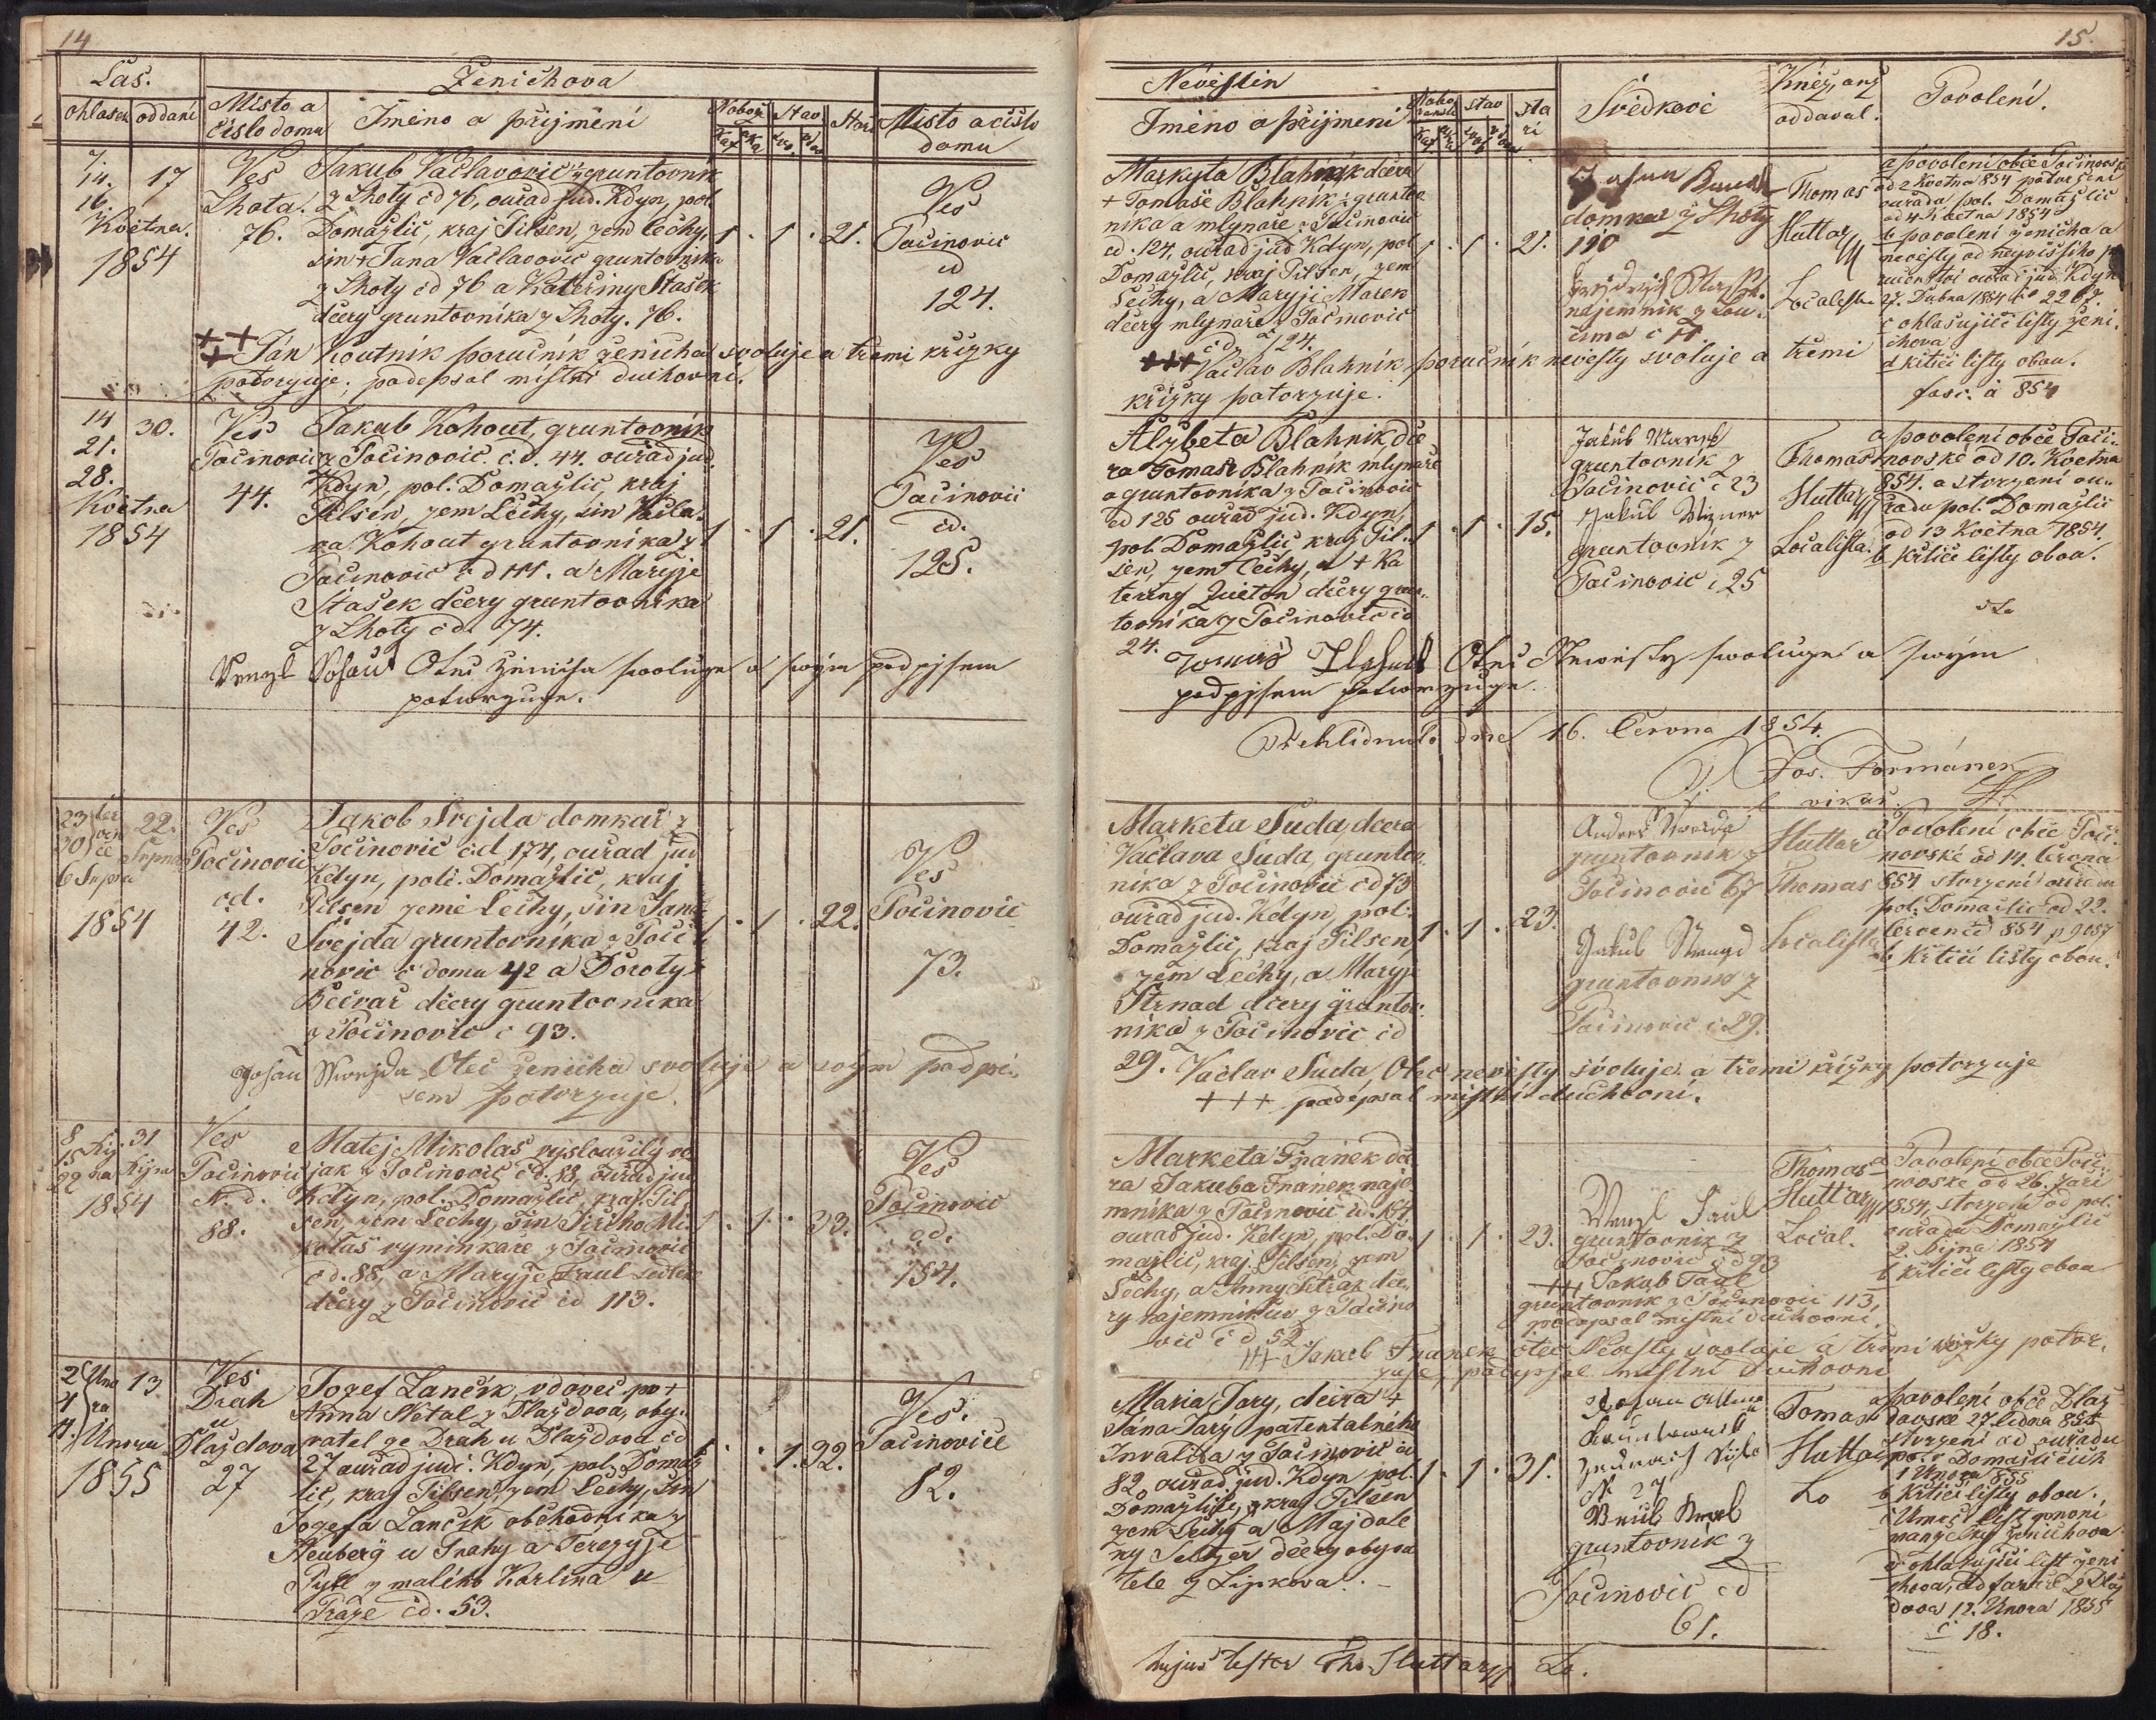 14
Čas.
Ženichova
ohlasek oddaní
Misto a číslo domu
Iméno a přijmení
Nábož. Stav Stáří
Misto a čislo domu
7.
14.
16.
Května.
1854
17
Ves
Lhota.
76.
Jakub Václavovic gruntovník
z Lhoty čd 76, ouřad jud. Kdyn, pol
Domažlic, kraj Pilsen, zem Čechy,
sin + Jana Václavovic gruntovníka
z Lhoty čd 76 a Kateřiny Stašek
dcery gruntovníka z Lhoty. 76.
1 . 1 . 21.
Ves
Počinovic
čd
124.
+++ Ján Koutník poručník ženicha svoluje a třemi křižky
potvrzuje; podepsal místní duchovní.
14
21.
28.
Května
1854
30.
Ves
Počinovic
44.
Jakub Kohout, gruntovník
z Počinovic. č.d. 44. ouřad jud.
Kdyn, pol. Domažlic, kraj
Pilsen, zem Čechy, sin Václa-
va Kohout gruntovníka z
Počinovic č d 44. a Maryje
Stašek dcery gruntovníka
z Lhoty č d. 74.
1 . 1 . 21.
Ves
Počinovic
čd.
125.
Wenzl Kohaut Otec ženicha swoluge a swým podpjsem
potwrzuge.
23 čer
30 ven
6 Srpna
1854
22.
Srpna
Ves
Počinovic
čd.
42.
Jakob Svejda domkář z
Počinovic čd 174, ouřad jud
Kdyn, poli. Domažlic, kraj
Pilsen zemi Čechy, sin Jana
Svejda gruntovníka z Poči
novic č domu 42 a Doroty
Bečvař dcery gruntovníka
z Počinovic č 93.
1 . 1 . 22.
Ves
Počinovic
73.
Johan Swejda Otec ženicha svoluje a svým podpi-
sem potvrzuje.
8
15 Říj
22 na
1854
31
Října
Ves
Počinovic
N. d.
88.
Matej Mikolaš vysloužilý vo
jak z Počinovic čd. 88, ouřad jud
Kdyn, pol. Domažlic, kraj Pil
sen, zem Čechy, sin Jiřího Mi-
kolaš vyminkaře z Počinovic
čd. 88, a Maryje Paul
dcery z Počinovic čd 113.
1 . 1 . 33.
Ves
Počinovic
čd.
154.
2 Úno
4 ra
11.
Února
1855
13
Ves
Drah
u
Dlaždova
27
Jozef Lančík, vdovec po +
Anna Netal z Dlaždova, oby-
vatel ze Drah u Dlaždova čd
27 ouřad judi. Kdyn, pol. Domaž
lic, kraj Pilsen, zem Čechy, Sin
Jozefa Lančík obchodníka z
Neuberg u Prahy a Terezyje
Pytl z malého Karlína u
Praze čd. 53.
1 . . 1. 32.
Ves.
Počinovice
82.
15.
Nevěstin
Iméno a přijmení
Nábo ženství Stav Sta ří
Svědkovi
Kněz, anž oddával.
Povolení.
Markyta Blahník dcera
+ Tomáše Blahník gruntov
níka a mlynáře z Počinovic
čd. 124, ouřad jud Kdyn, pol
Domažlic, kraj Pilsen, zem
Čechy, a Maryji Mareš
dcery mlynáře z Počinovic
čd 124.
1 . 1 . 21.
Johan
domkař z Lhoty
120
nájemník z Lou-
čima č 11.
Thomas
Huttary
Localista
a povolení obce Počinovské
od 2 Května 854 potvrzení
ouřadu pol. Domažlic
od 4 Května 1854
b povolení ženicha a
nevěsty od nejvyššího po
ručenství ouřad jud. Kdyn
27. Dubna 1854 č 2267.
c ohlašující listy ženi-
chova
d křtící listy obou.
fasc. à 854
+++ Václav Blahník poručník nevěsty svoluje a třemi
křižky potvrzuje.
Alzbeta Blahník, dce
ra Tomáše Blahník mlynáře
a gruntovníka z Počinovic
čd 125 ouřad jud. Kdyn,
pol. Domažlic, kraj Pil-
sen, zem Čechy, a + Ka
teriny Květon dcery grun-
tovníka z Počinovic čd
24.
1 . 1 . 15.
Jakub
gruntovník z
Počinovic č 23
Jakub Wizner
gruntovník z
Počinovic č 25
Thomas
Huttary
Localista.
a povolení obce Poči-
novské od 10. Května
854. a stvrzení ou-
řadu pol. Domažlic
od 13 Května 1854.
b Křtící listy obou.
Tomas Blahnik Otec Newěsty swoluge a swým
podpjsem potwrzuge.
Přehlídnuto dne 16. Června 1854.
Jos. Formánek
vikář.
Marketa Suda, dcera
Václava Suda, gruntov-
níka z Počinovic čd 73
ouřad jud. Kdyn, pol.
Domažlic, kraj Pilsen,
zem Čechy, a Maryje
Strnad dcery gruntov-
níka z Počinovic čd
29.
1 . 1 . 23.
gruntovník z
Počinovic 67
Jakub
gruntovník z
Počinovic č 29.
Huttar
Thomas
Localista
a Povolení obce Poči-
novské od 14. června
854 stvrzení ouřadu
pol. Domažlic od 22.
červen čd 854 p 9057
b Křtící listy obou.
Vaclav Suda, Otec nevěsty, svoluje a třemi křížky potvrzuje
+++ podepsal místní duchovní.
Marketa Franek dce
ra Jakuba Franek náje
mníka z Počinovic čd. 154
ouřad jud. Kdyn, pol. Do-
mažlic, kraj. Pilsen, zem
Čechy, a Anny dce-
ry nájemníků z Počino
vic č d 52
1 . 1 . 23.
Wenzl Paul
gruntovník z
Počinovic č d 93
+++ Jakub Paul
gruntovník z Počinovic 113,
podepsal místní duchovní.
Thomas
Huttary
Local.
a Povolení obce Poči-
novské od 26. Září
1854, stvrzení od pol.
ouřadu Domažlic
2. Října 1854
b křtící listy obou
+++ Jakub Franek otec Nevěsty svoluje a třemi křížky potvr-
zuje, podepsal místní duchovní
Maria Jary, dcera +
Jána Jarý patentalního
Invalida z Počinovic čd
82, ouřad. jud. Kdyn pol.
Domažlice, z kraj Pilsen
zem Čechy a Majdale
ny Seltzer dcery obyva
tele z Lipkova. -
1 . 1 . 31.
Johan
N 27
gruntovník z
Počinovic čd
61.
Tomas
Huttar
Lo
a povolení obce Dlaž
dovské 27. ledna 855
stvrzení od ouřadu
pol. v Domažlicích
1 Února 855
b Křtící listy obou.
c Umrčí list první
manželky ženichova
d ohlašující list ženi
chova, od farář z Dlaž
dova 12. Února 1855
č 18.
hujus testor Tho. Huttary Lo.